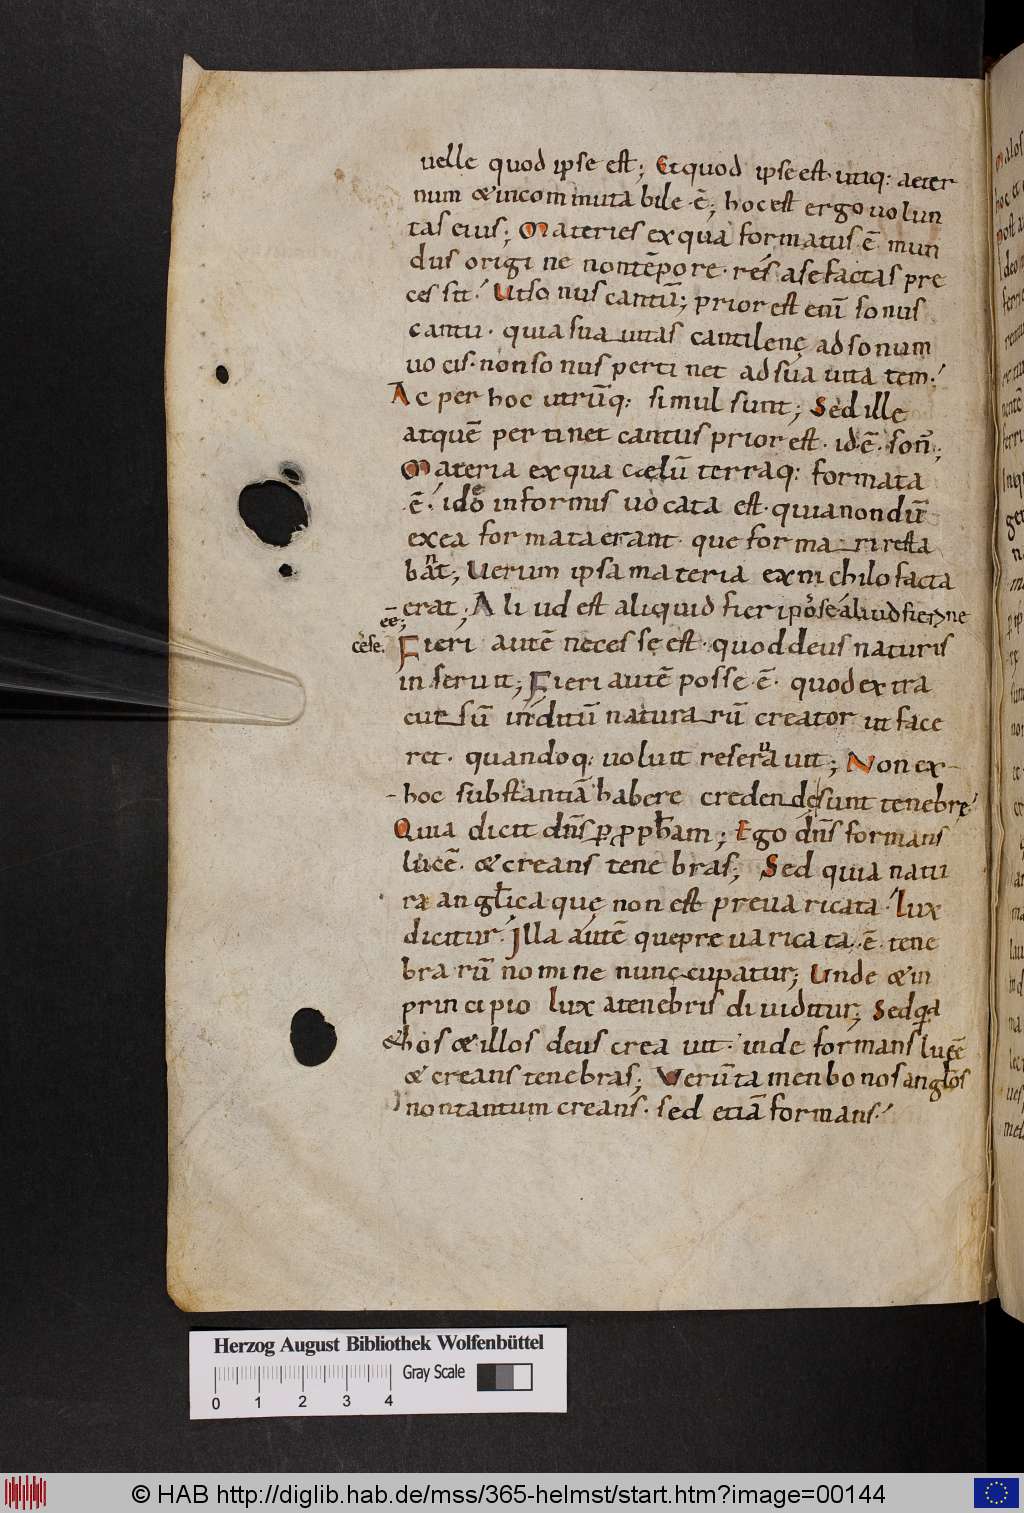 uelle quod ipse est; Et quod ipse est utiq: aeter
num & incommutabile ē; hoc est ergo uolun
tas eius; Materies ex qua formatus ē mun
dus origine non tēpore res a se factas pre
cessit; Ut sonus cantū; prior est eni sonus
cantu· quia suauitas cantilenę ad sonum
uocis· non sonus pertinet ad suauitatem;
Ac per hoc utrūq: simul sunt; Sed ille
at quē pertinet cantus prior est· id ē· son;
Materia ex qua caelū terraq: formata
ē· ido informis uocata est· quia nondū
ex ea formata erant· que formari resta
bant; Uerum ipsa materia ex nichilo facta
erat; Aliud est aliquid fieri posse aliud fieri ne
ēē;
cesse. Fieri autē necesse est· quod deus naturis
inseruit; Fieri autē posse ē· quod extra
cursū inditū naturarū creator ut face
ret· quandoq: uoluit reseruauit; Non ex
hoc substantiā habere credendę sunt tenebrę
Quia dicit dn̄s p pphām; Ego dn̄s formans
lucē· & creans tenebras; Sed quia natu
ra anglica quę non est preuaricata· lux
dicitur· Illa autē que preuaricata ē· tene
brarū nomine nuncupatur; Unde & in
principio lux a tenebris diuiditur; Sed qa
& hos & illos deus creauit· inde formans lucē
& creans tenebras; Uerūtamen bonos anglos
non tantum creans· sed etiā formans;
Herzog August Bibliothek Wolfenbüttel
Gray Scale
0 1 2 3 4
© HAB http://diglib.hab.de/mss/365-helmst/start.htm?image=00144